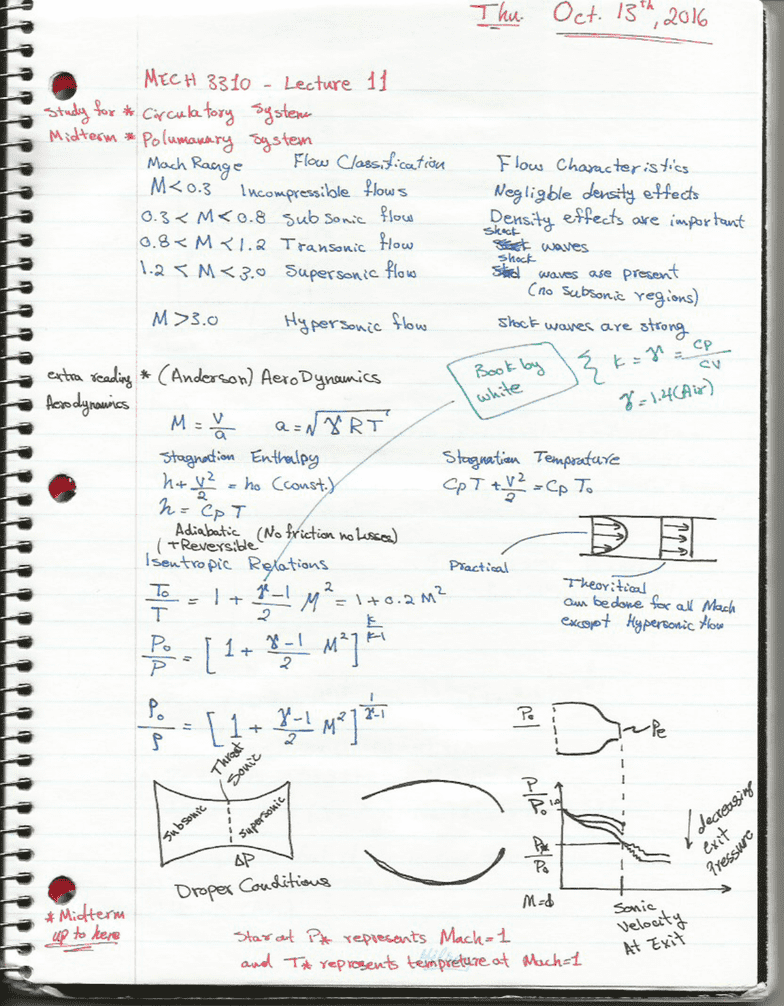 Thu. Oct. 13th, 2016
MECH 3310 - Lecture 11
Study for * Circulatory System
Midterm * Polumanary System
Mach Range Flow Classification Flow Characteristics
M < 0.3 Incompressible flows Negligble density effects
0.3 < M < 0.8 Subsonic flow Density effects are important
0.8 < M < 1.2 Transonic flow shock waves
1.2 < M < 3.0 Supersonic flow shock waves are present
(no subsonic regions)
M > 3.0 Hypersonic flow shock waves are strong
Book by
white
{ k = γ = CP/CV
γ = 1.4 (Air)
extra reading * (Anderson) AeroDynamics
Aerodynamics
M = V/a a = √γRT
Stagnation Enthalpy Stagnation Temprature
h + V²/2 = h₀ (const.) CpT + V²/2 = CpT₀
h = CpT
Adiabatic (No friction no Losses)
(+Reversible
Isentropic Relations
Practical
Theoritical
can be done for all Mach
except Hypersonic flow
T₀/T = 1 + γ-1/2 M² = 1 + 0.2 M²
P₀/P = [1 + γ-1/2 M²]^k/k-1
ρ₀/ρ = [1 + γ-1/2 M²]^1/γ-1
P₀ Pe
Throat
Sonic
Subsonic Supersonic
ΔP
Droper Conditions
P/P₀ 1.0
P*/P₀
decreasing
exit
Pressure
M=0
Sonic
Velocity
At Exit
* Midterm
up to here
Star at P* represents Mach=1
and T* represents tempreture at Mach=1